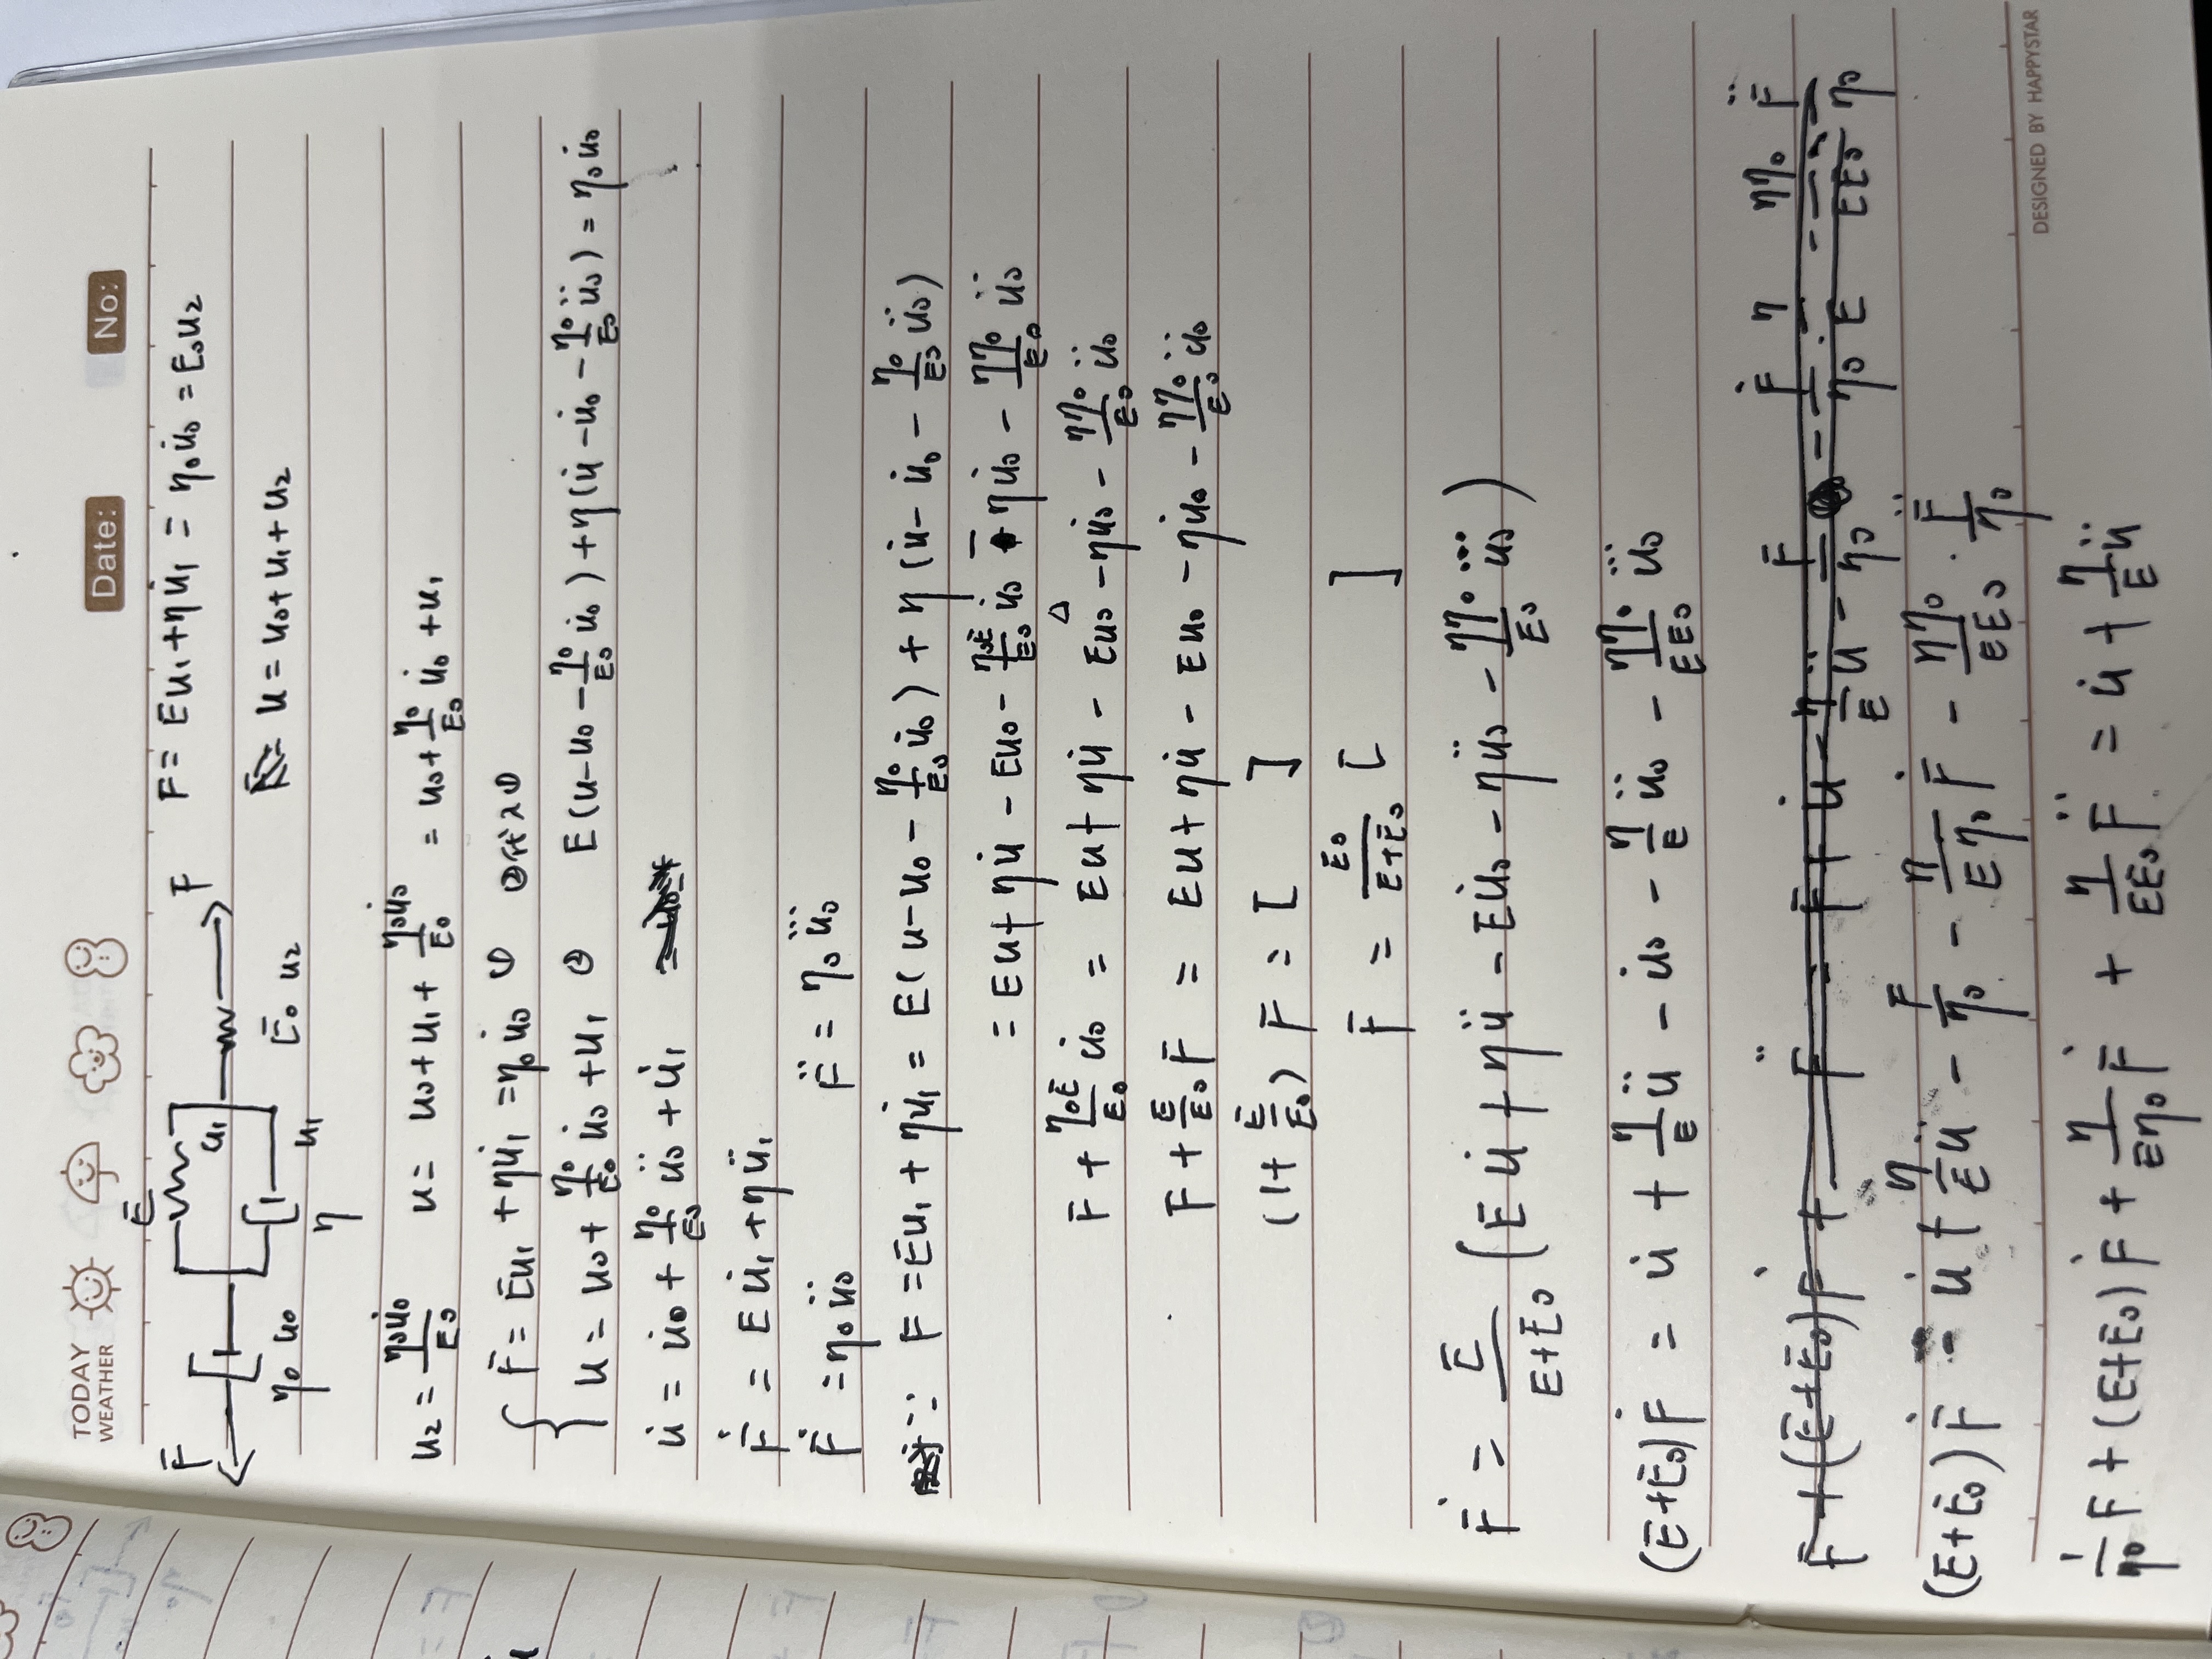 TODAY WEATHER Date: No:
F E u₁ η₀ u₀ η u₁ E₀ u₂ F
F = Eu₁ + ηu̇₁ = η₀u̇₀ = E₀u₂
u = u₀ + u₁ + u₂
u₂ = η₀u̇₀/E₀ u = u₀ + u₁ + η₀u̇₀/E₀ = u₀ + η₀/E₀ u̇₀ + u₁
F = Eu₁ + ηu̇₁ = η₀u̇₀ ① ②代入①
u = u₀ + η₀/E₀ u̇₀ + u₁ ② E(u - u₀ - η₀/E₀ u̇₀) + η(u̇ - u̇₀ - η₀/E₀ ü₀) = η₀u̇₀
u̇ = u̇₀ + η₀/E₀ ü₀ + u̇₁
Ḟ = Eu̇₁ + ηü₁
Ḟ = η₀ü₀ F̈ = η₀u⃛₀
∵ F = Eu₁ + ηu̇₁ = E(u - u₀ - η₀/E₀ u̇₀) + η(u̇ - u̇₀ - η₀/E₀ ü₀)
= Eu + ηu̇ - Eu₀ - η₀E/E₀ u̇₀ - ηu̇₀ - ηη₀/E₀ ü₀
F + η₀E/E₀ u̇₀ = Eu + ηu̇ - Eu₀ - ηu̇₀ - ηη₀/E₀ ü₀
F + E/E₀ F = Eu + ηu̇ - Eu₀ - ηu̇₀ - ηη₀/E₀ ü₀
(1 + E/E₀) F = [ ]
F = E₀/(E+E₀) [ ]
Ḟ = E/(E+E₀) (Eu̇ + ηü - Eu̇₀ - ηü₀ - ηη₀/E₀ u⃛₀)
(E+E₀)Ḟ = u̇ + η/E ü - u̇₀ - η/E ü₀ - ηη₀/EE₀ u⃛₀
F + (E+E₀)Ḟ + F̈ = F + u̇ - η/E ü - F/η₀ - Ḟ/η₀ · η/E - ηη₀/EE₀ · F̈/η₀
(E+E₀)Ḟ = u̇ + η/E ü - F/η₀ - η/Eη₀ Ḟ - ηη₀/EE₀ · F̈/η₀
DESIGNED BY HAPPYSTAR
1/η₀ F + (E+E₀)Ḟ + η/Eη₀ Ḟ + η/EE₀ F̈ = u̇ + η/E ü